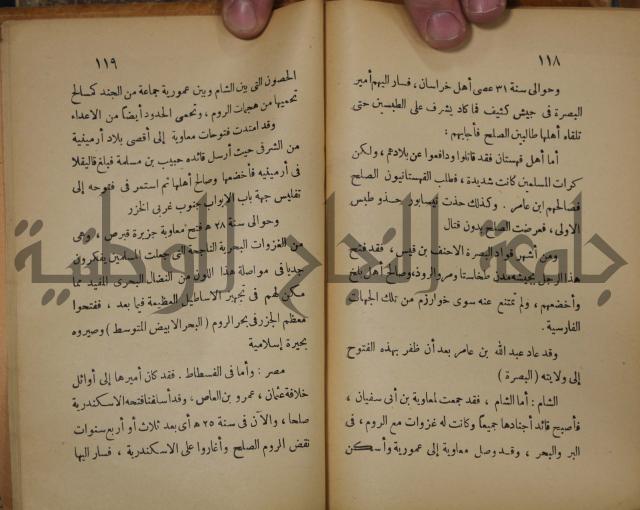 ١١٨
وحوالى سنة ٣١ عصى أهل خراسان ، فسار اليهم أمير
البصرة فى جيش كثيف فما كاد يشرف على الطبسين حتى
تلقاه أهلها طالبين الصلح فأجابهم :
أما أهل قهستان فقد قاتلوا ودافعوا عن بلادهم ، ولكن
كرات المسلمين كانت شديدة ، فطلب القهستانيون الصلح
فصالحهم ابن عامر . وكذلك حذت نيسابور حذو طبس
الاولى ، فعرضت الصلح بدون قتال
ومن أشهر قواد البصرة الاحنف بن قيس ، فقد فتح
هذا الرجل بجيشه مدن طخاستا ومرو الروذ وصالح أهل بلخ
وأخضعهم ، ولم تمتنع عنه سوى خوارزم من تلك الجهات
الفارسية .
وقد عاد عبد الله بن عامر بعد أن ظفر بهذه الفتوح
إلى ولايته ( البصرة )
الشام : أما الشام ، فقد جمعت لمعاوية بن أبى سفيان ،
فأصبح قائد أجنادها جميعاً وكانت له غزوات مع الروم ، فى
البر والبحر ، وقد وصل معاوية إلى عمورية وأسكن
١١٩
الحصون التى بين الشام وبين عمورية جماعة من الجند كمسالح
تحميها من هجمات الروم ، وتحمى الحدود أيضاً من الاعداء
وقد امتدت فتوحات معاوية إلى أقصى بلاد أرمينية
من الشرق حيث أرسل قائده حبيب بن مسلمة فبلغ قاليقلا
فى أرمينيه فأخضعها وصالح أهلها ثم استمر فى فتوحه إلى
تفليس جهة باب الابواب جنوب غربى الخزر
وحوالى سنة ٢٨ ه فتح معاوية جزيرة قبرص ، وهى
من الغزوات البحرية الناجحة التى جعلت المسلمين يفكرون
جديا فى مواصلة هذا اللون من النضال البحرى المفيد مما
مكن لهم فى تجهيز الاساطيل العظيمة فيما بعد ، ففتحوا
معظم الجزر فى بحر الروم ( البحر الابيض المتوسط ) وصيروه
بحيرة إسلامية
مصر : وأما فى الفسطاط . فقد كان أميرها إلى أوائل
خلافة عثمان ، عمرو بن العاص ، وقد أسلفنا فتحه الاسكندرية
صلحا ، والآن فى سنة ٢٥ ه أى بعد ثلاث أو أربع سنوات
نقض الروم الصلح وأغاروا على الاسكندرية ، فسار اليها
جامعة النجاح الوطنية